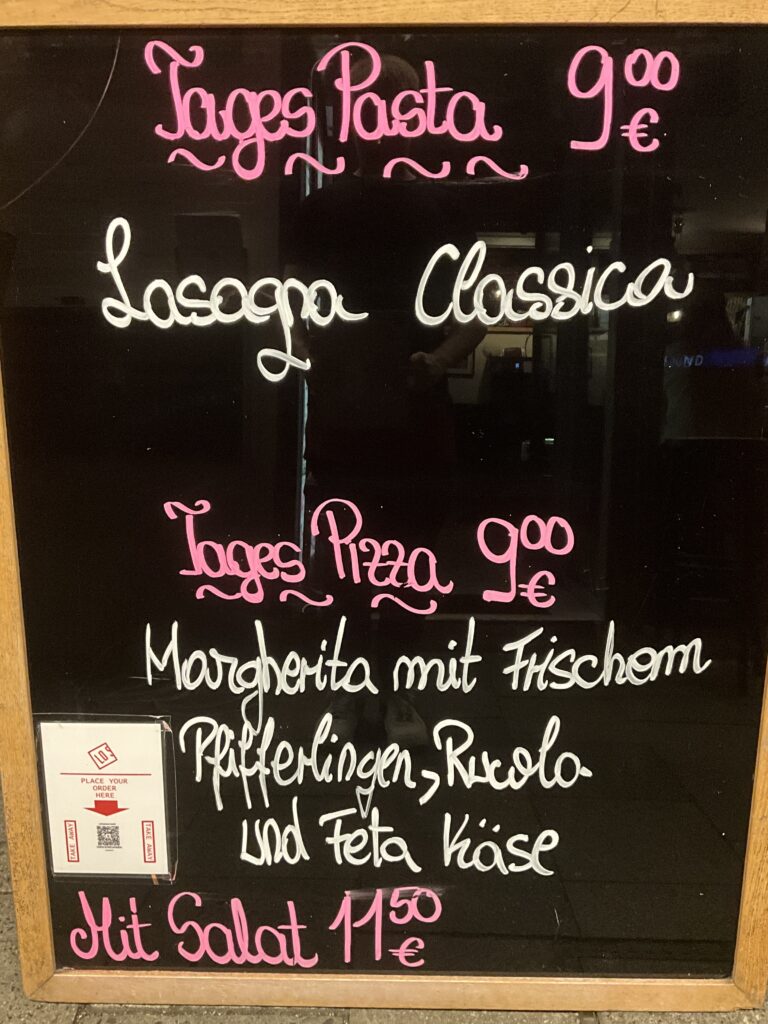 Tages Pasta 900 €
Lasagna Classica
Tages Pizza 900 €
Margherita mit Frischem
Pfifferlingen, Rucola
und Feta Käse
LOS
PLACE YOUR
ORDER
HERE
TAKE AWAY
TAKE AWAY
Mit Salat 11 50 €